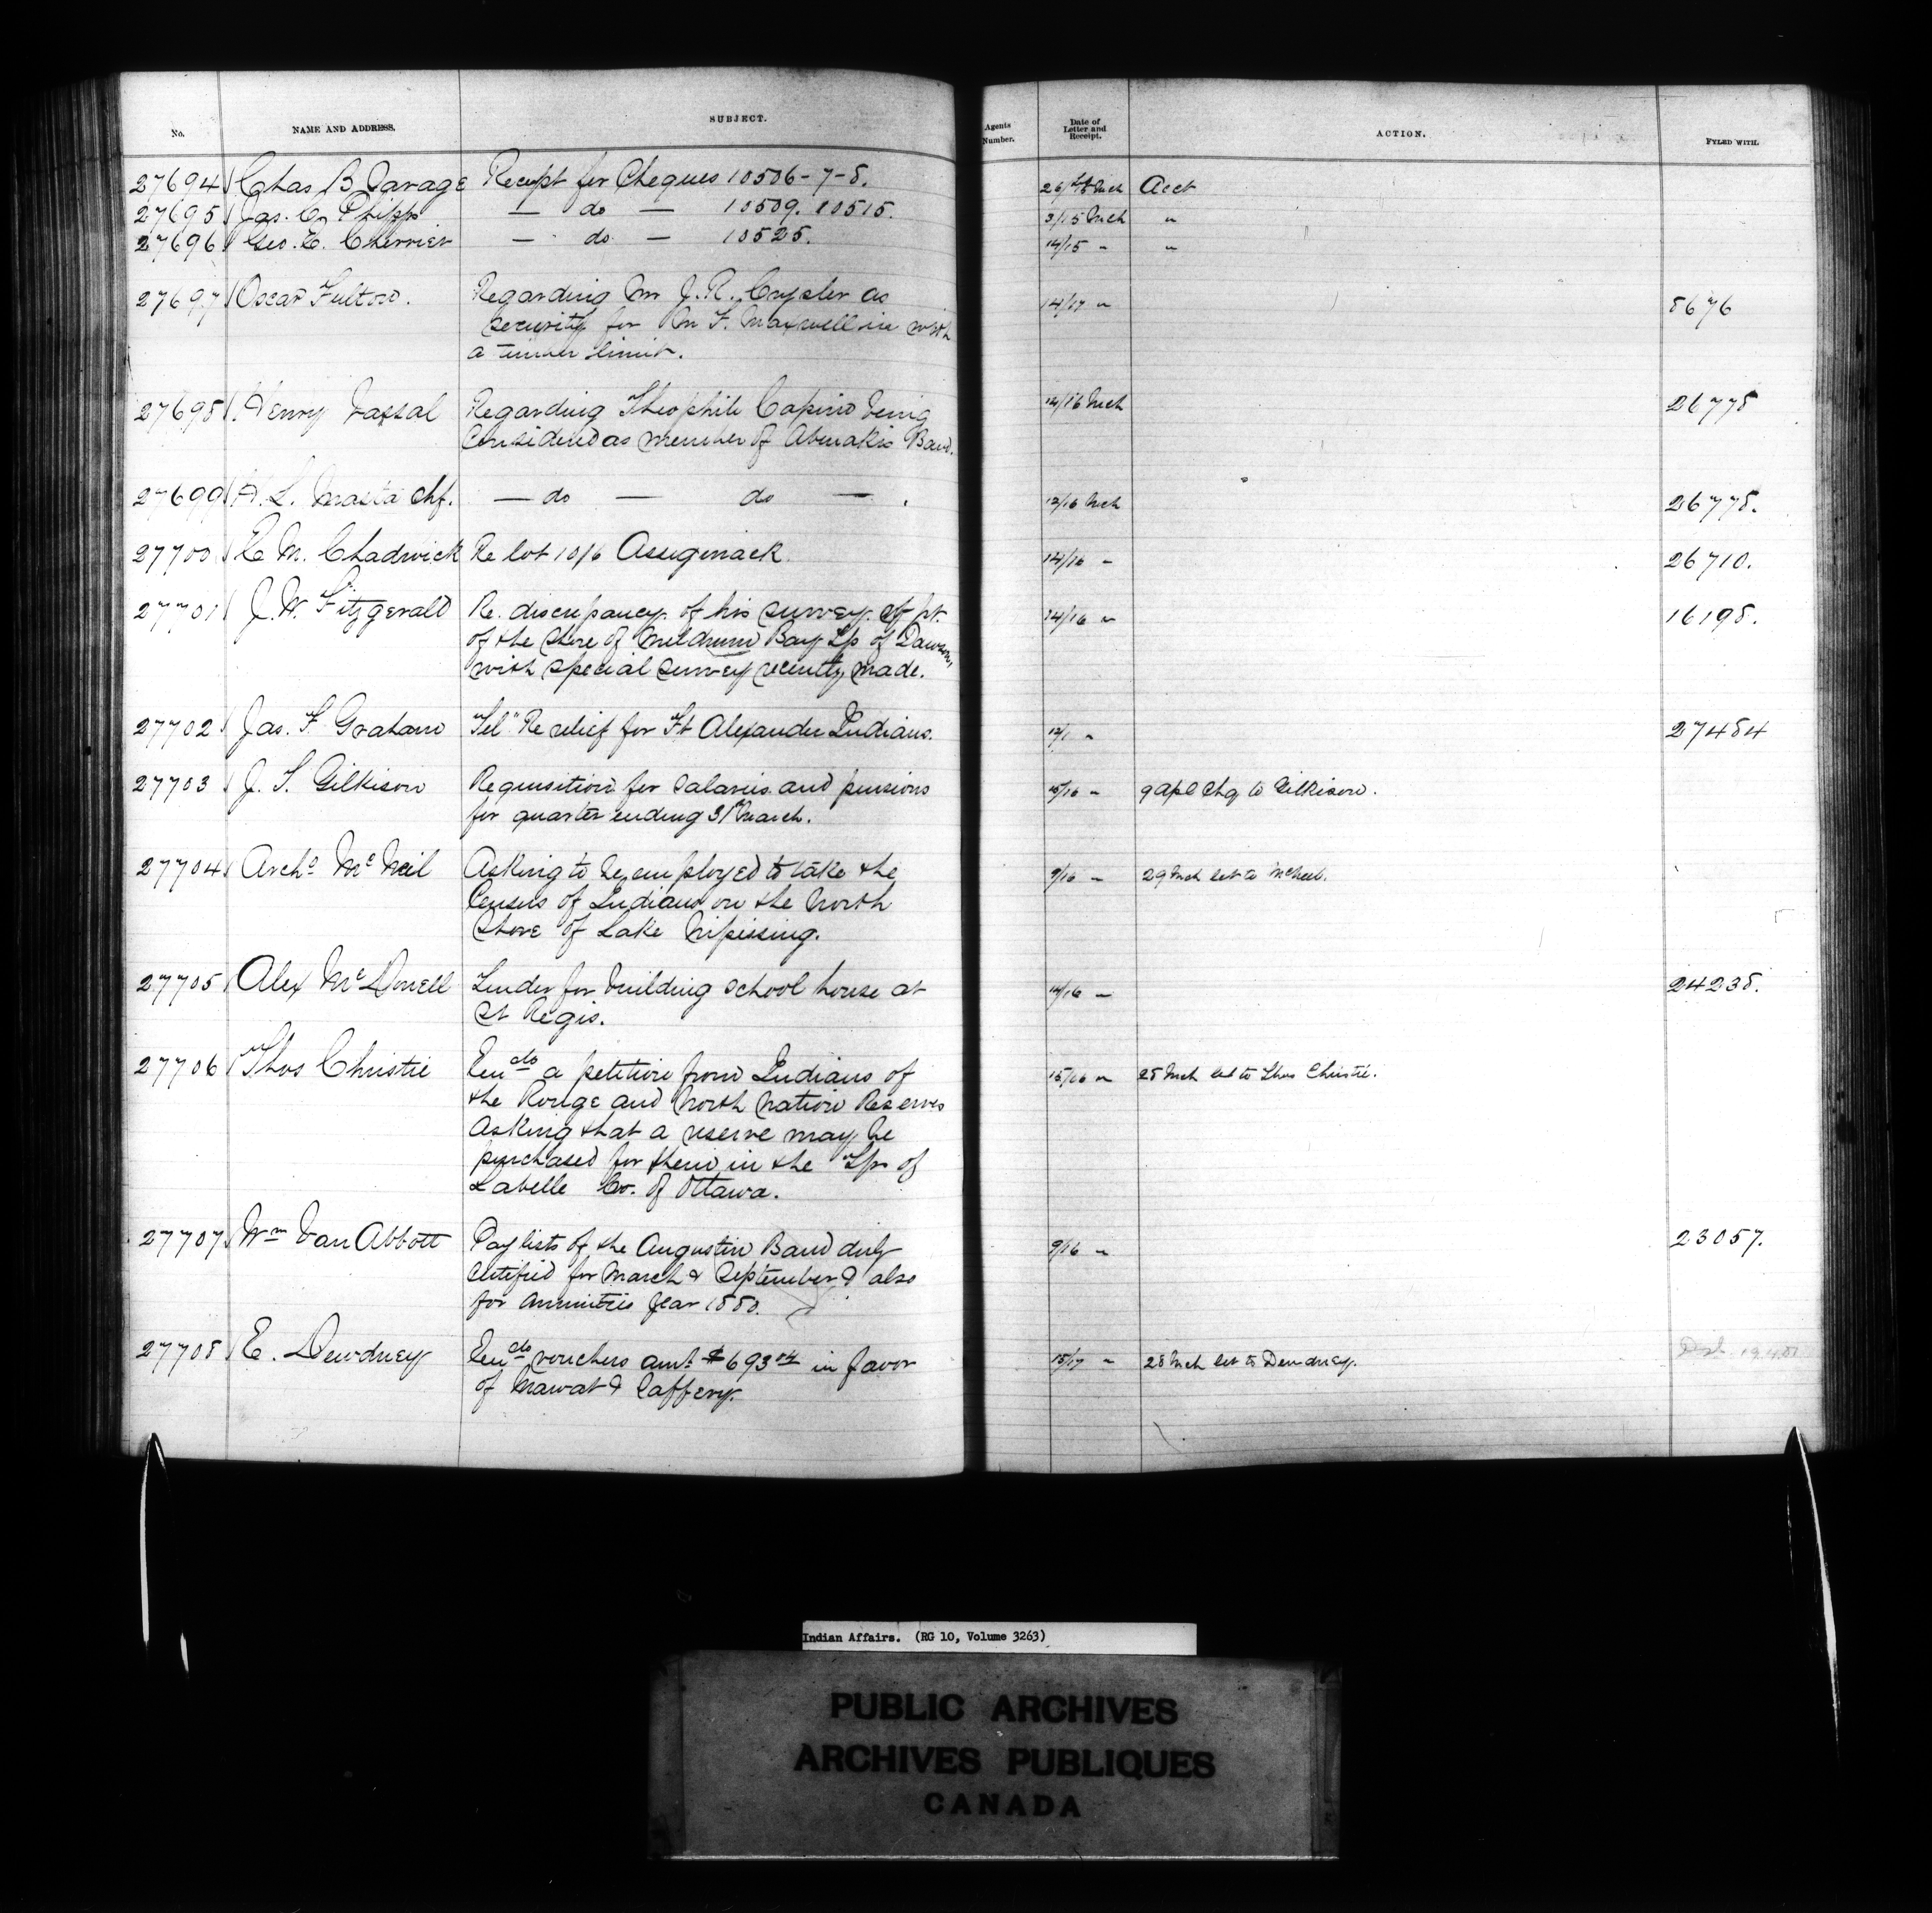 No. NAME AND ADDRESS. SUBJECT. Agents Number. Date of Letter and Receipt. ACTION. FYLED WITH.
27694 Chas B Savage Receipt for Cheques 10506-7-8. 26/15 Mch Acct
27695 Jas. C. Phipps — do — 10509. 10515. 3/15 Mch "
27696 Geo. E. Cherrier — do — 10525. 14/15 " "
27697 Oscar Fulton. Regarding Mr J.R. Crysler as 14/17 " 8676
security for Mr F. Maxwell in with
a timber limit.
27698 Henry Vassal Regarding Theophile Capino being 14/16 Mch 26778
considered as member of Abenakis Band.
27699 H. L. Masta Chf. — do — do — . 12/16 Mch 26778.
27700 E M. Chadwick Re lot 10/6 Assiginack. 14/16 " 26710.
27701 J. W. Fitzgerald Re. discrepancy of his survey of pt. 14/16 " 16198.
of the shore of Meldrum Bay Tp of Dawson,
with special survey recently made.
27702 Jas. F. Graham "Tel" Re relief for Ft Alexander Indians. 12/1 " 27484
27703 J. T. Gilkison Requisition for salaries and pensions 15/16 " 9 Apl Chq to Gilkison.
for quarter ending 31st March.
27704 Archd McNeil Asking to be employed to take the 9/16 " 29 Mch let to McNeil.
Census of Indians on the North
Shore of Lake Nipissing.
27705 Alex McDonell Tender for building school house at 14/16 " 24238.
St Regis.
27706 Thos Christie Encds a petition from Indians of 15/16 " 28 Mch let to Thos Christie.
the Rouge and North Nation Reserves
Asking that a reserve may be
purchased for them in the Tp. of
Labelle Co. of Ottawa.
27707 Wm Van Abbott Pay lists of the Augustin Band duly 9/16 " 23057.
certified for March & September & also
for annuities year 1880.
27708 E. Dewdney Encds vouchers amt. $693 04 in favor 15/17 " 28 Mch let to Dewdney.
of Mawat & Caffery.
Indian Affairs. (RG 10, Volume 3263)
PUBLIC ARCHIVES
ARCHIVES PUBLIQUES
CANADA